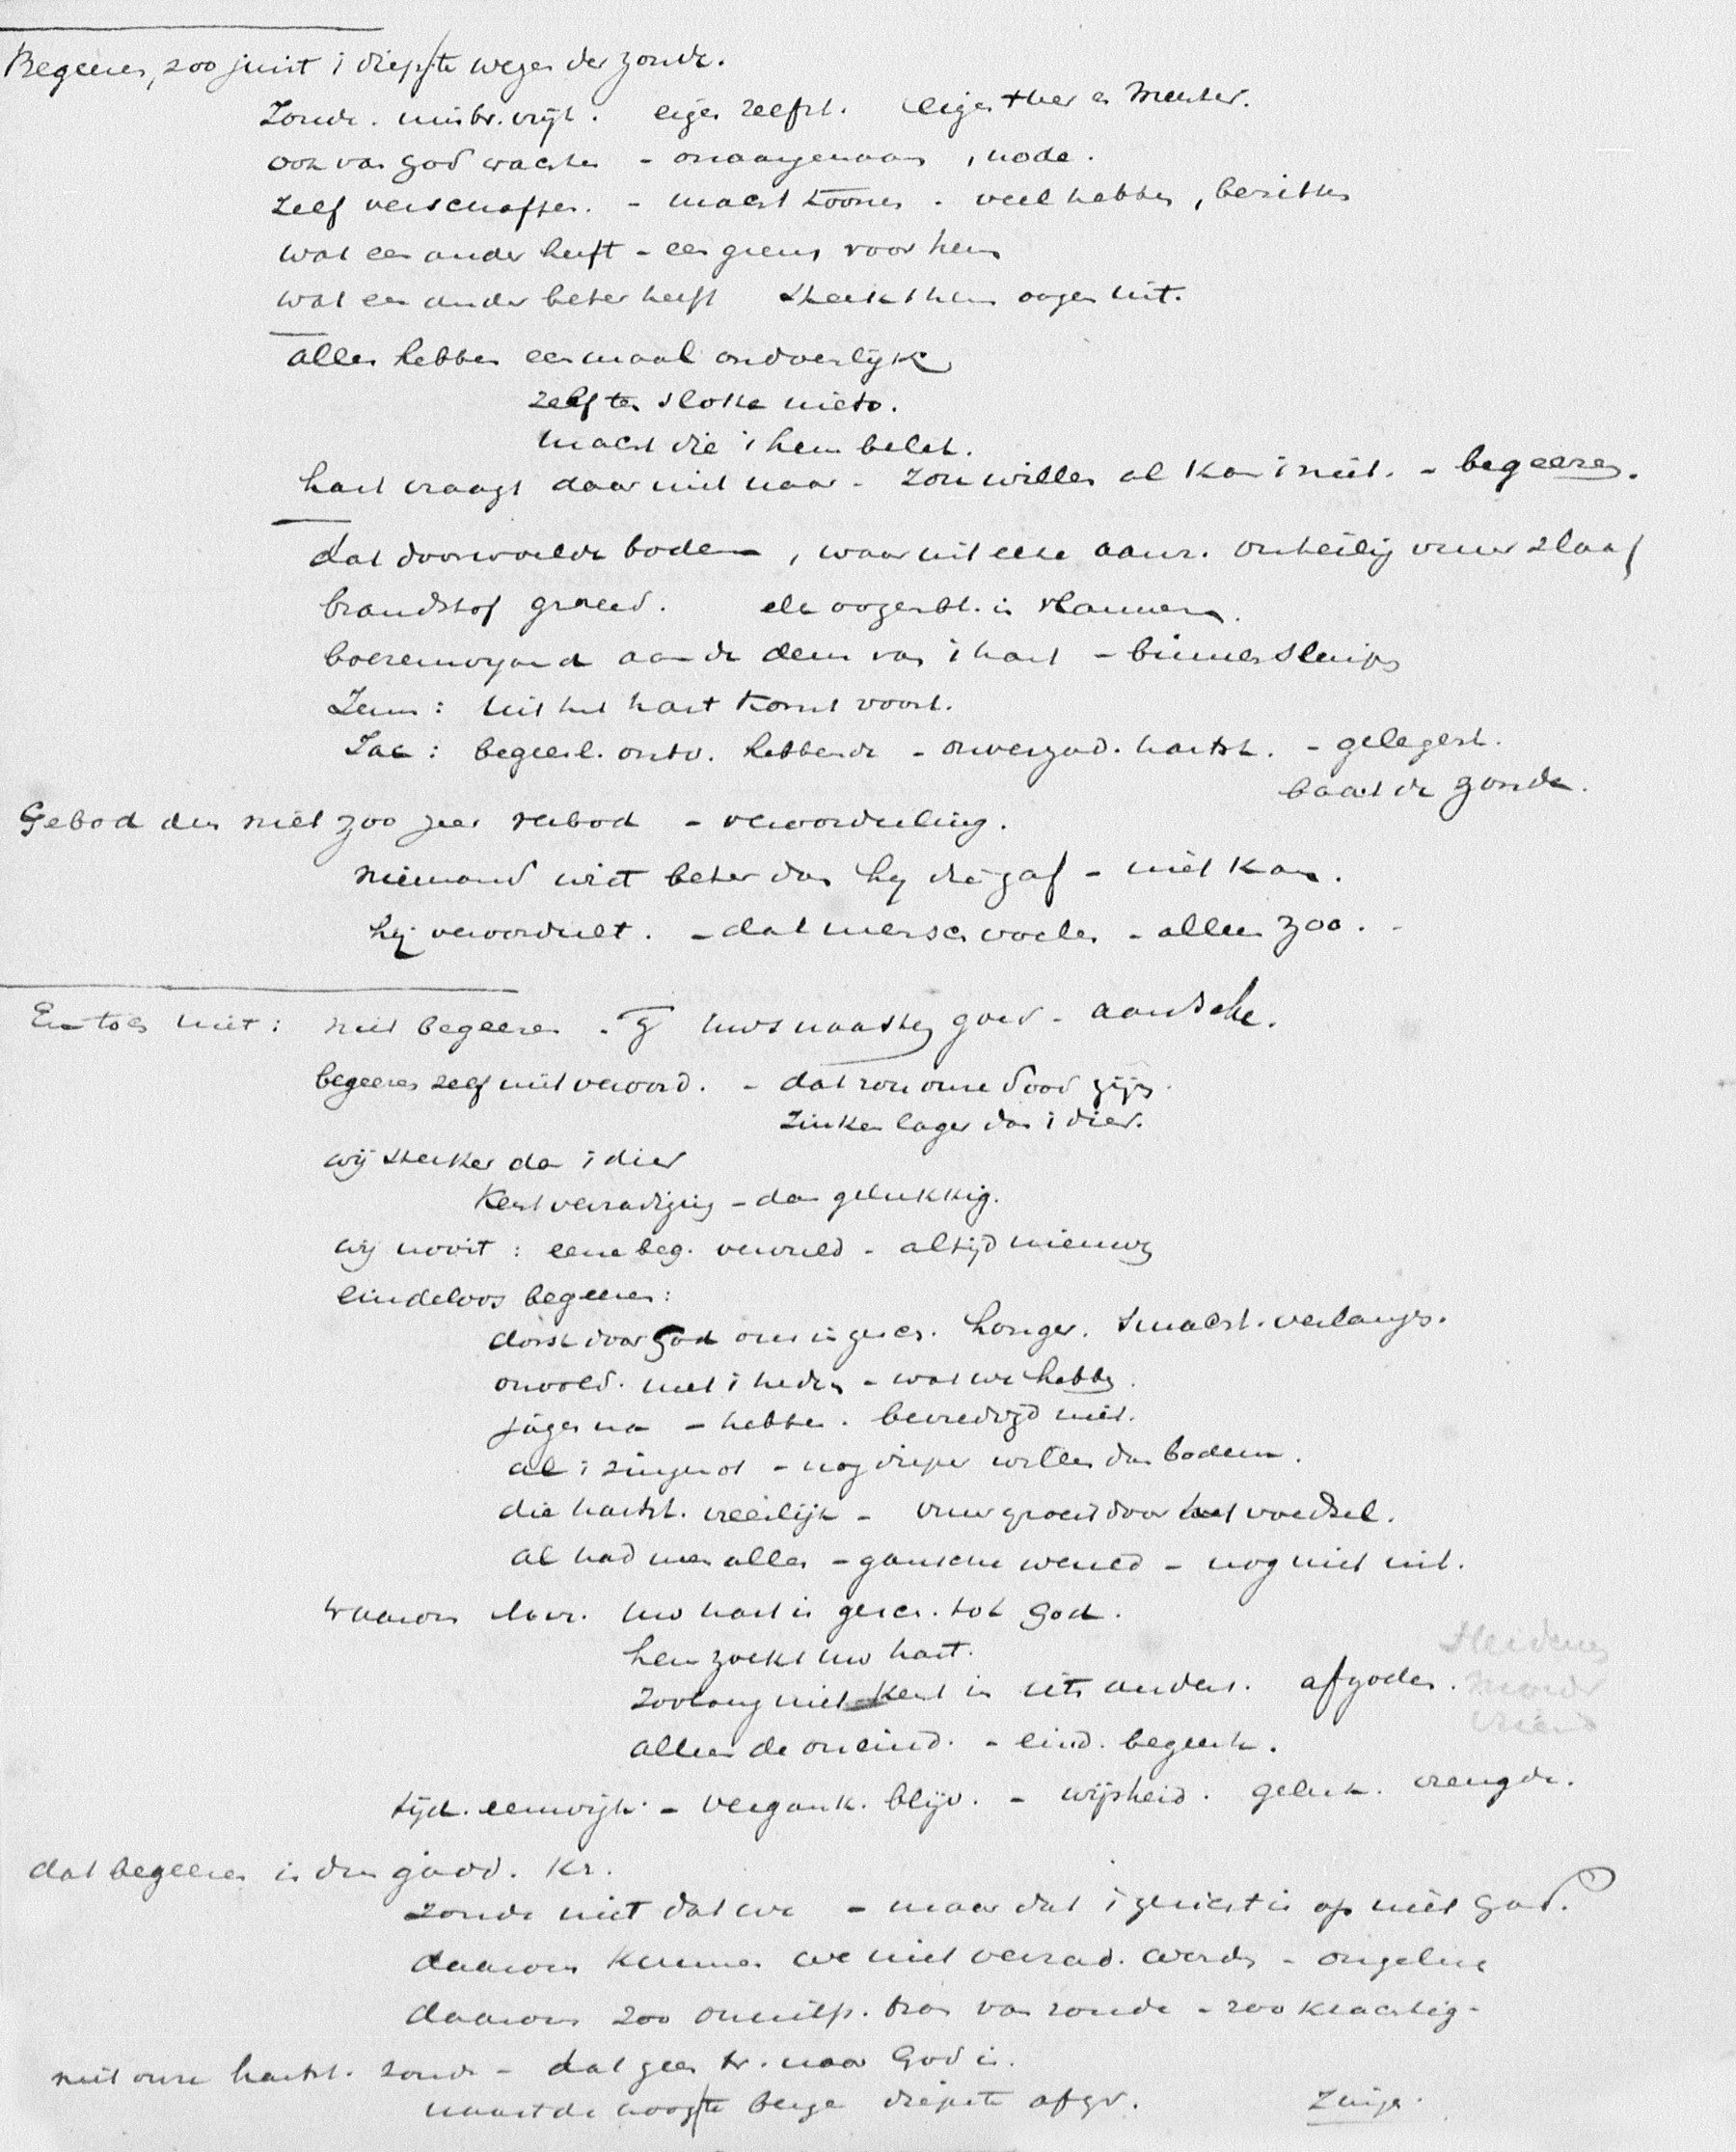 Begeeren, zoo juist i diepste wezen der zonde.
Zonde. misbr. vrijh. eigen zelfst. eigen heer en meester.
ook van God wachten - onaangenaam, node.
zelf verschaffen. - macht toonen - veel hebben, bezitten
wat een ander heeft - een grens voor hem
wat een ander beter heeft steekt hem oogen uit.
alles hebben eenmaal ondoenlijk
zelf ten slotte niets.
macht die i hem belet.
hart vraagt daar niet naar - zou willen al kan i niet. - begeeren.
dat doorwoelde bodem, waaruit elke aanr. onheilig vuur slaat
brandstof gereed. elk oogenbl. in vlammen
boezemvijand aan de deur van i hart - binnensluipt
Jezus: uit het hart komt voort.
Jac: begeerl. ontv. hebbende - onverzad. hartst. - gelegenh.
baart de zonde.
Gebod dus niet zoo zeer verbod - veroordeeling.
niemand wist beter dan hij die gaf - niet kan.
hij veroordeelt. - dat mensch voelen - alleen zoo.
En toch niet: niet begeeren - uws naasten goed - aantek.
begeeren zelf niet veroord. - dat zou onze dood zijn.
zinken lager dan i dier.
wij sterker dan i dier
kent verzadiging - dan gelukkig.
wij nooit: eene beg. vervuld - altijd nieuwe
eindeloos begeeren:
dorst door God ons ingesch. honger. smacht. verlangen.
onvold. met i heden - wat we hebben.
jagen na - hebben. bevredigd niet.
al i zingenot - nog dieper willen dan bodem.
die hartst. vreeslijk - vuur groeit door het voedsel.
al had men alles - gansche wereld - nog niet uit.
waarom daar. uw hart is gesch. tot God.
hem zoekt uw hart.
zoolang niet kent in iets anders. afgoden.
Heidenen
moeder
vriend
alleen de oneind. - eind. begeerte.
tijd. eeuwigh. - vergank. blijv. - wijsheid. geluk. vreugde.
dat begeeren is dus godd. kr.
zonde niet dat we - maar dat i gericht is op niet God.
daarom kunnen we niet verzad. worden - ongeluk
daarom zoo onuitsp. van zonde - zoo krachtig -
niet onze hartst. zonde - dat geen naar God is.
naast de hoogste bergen diepste afgr.